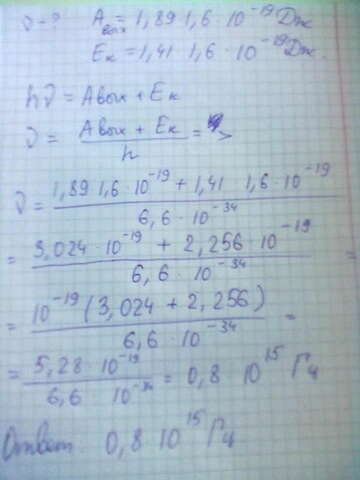 ν-? Aвых = 1,89 1,6 · 10⁻¹⁹ Дж
Eк = 1,41 · 1,6 · 10⁻¹⁹ Дж.
hν = Aвых + Eк
ν = (Aвых + Eк) / h = >
ν = (1,89 1,6 · 10⁻¹⁹ + 1,41 1,6 · 10⁻¹⁹) / (6,6 · 10⁻³⁴)
= (3,024 · 10⁻¹⁹ + 2,256 · 10⁻¹⁹) / (6,6 · 10⁻³⁴) =
= 10⁻¹⁹ (3,024 + 2,256) / (6,6 · 10⁻³⁴) =
= (5,28 · 10⁻¹⁹) / (6,6 · 10⁻³⁴) = 0,8 10¹⁵ Гц
Ответ 0,8 10¹⁵ Гц